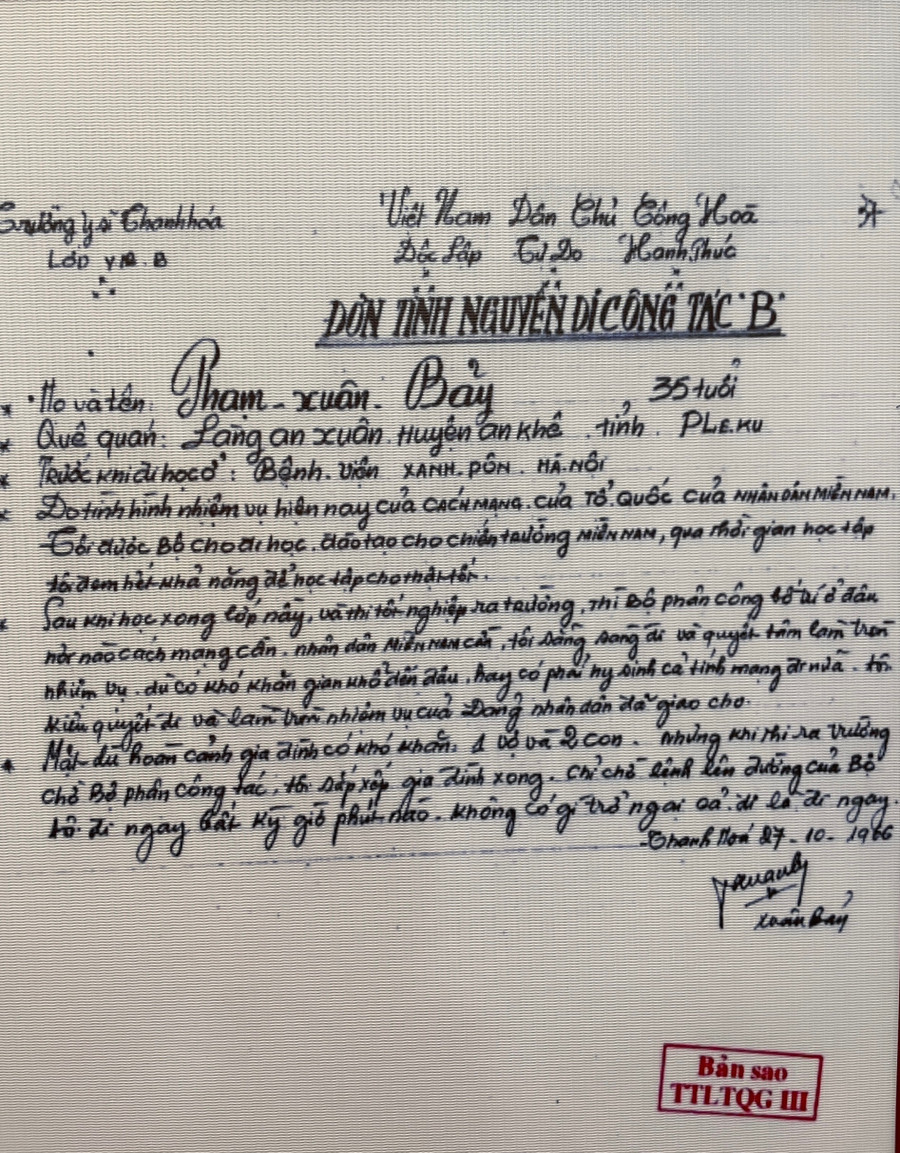 Trường y sĩ Thanh hóa
Lớp Y12.B
Việt Nam Dân Chủ Cộng Hoà
Độc Lập Tự Do Hạnh Phúc
ĐƠN TÌNH NGUYỆN ĐI CÔNG TÁC "B"
* Họ và tên: Phạm - xuân - Bảy, 35 tuổi
* Quê quán: Làng an xuân. Huyện an khê. tỉnh. PLE.KU
* Trước khi đi học ở: Bệnh. Viện XANH. PÔN. HÀ. NỘI
* Do tình hình nhiệm vụ hiện nay của CÁCH MẠNG. của TỔ. QUỐC CỦA NHÂN DÂN MIỀN NAM.
Tôi được Bộ cho đi học. đào tạo cho chiến trường MIỀN NAM, qua thời gian học tập
tôi đem hết khả năng để học tập cho thật tốt.
* Sau khi học xong lớp này, và thi tốt nghiệp ra trường, thì Bộ phân công bố trí ở đâu
nơi nào cách mạng cần. nhân dân MIỀN NAM cần, tôi sẵng sang đi và quyết tâm làm tròn
nhiệm vụ. dù có khó khăn gian khổ đến đâu. hay có phải hy sinh cả tính mạng đi nữa. tôi
kiên quyết đi và làm tròn nhiệm vụ của Đảng nhân dân đã giao cho.
* Mặt dù hoàn cảnh gia đình có khó khăn, 1 vợ và 2 con. Nhưng khi thi ra trường
chờ Bộ phân công tác, tôi sắp xếp gia đình xong. Chỉ chờ lệnh lên đường của Bộ
tôi đi ngay bất kỳ giờ phút nào. không có gì trở ngại cả. đi là đi ngay.
Thanh Hoá 27 - 10 - 1966
Xuân Bảy
Bản sao
TTLTQG III